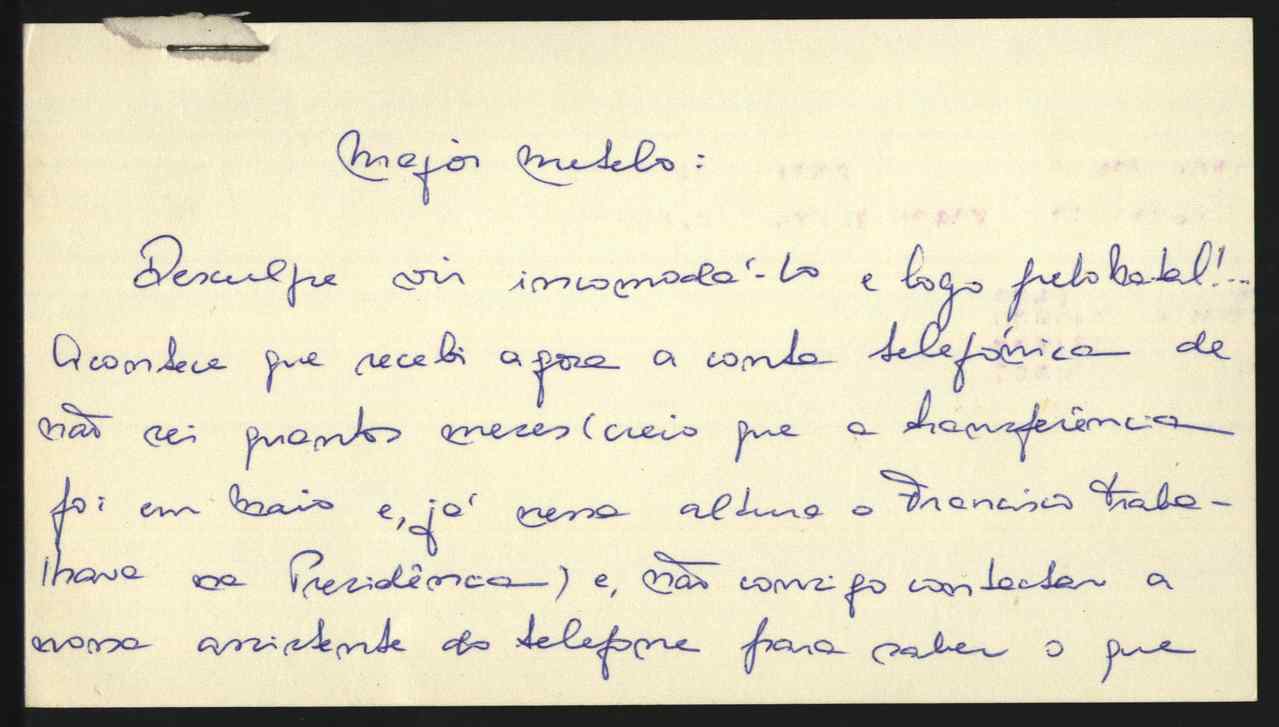 Major Metelo:
Desculpe vir incomodá-lo e logo pelo Natal!...
Acontece que recebi agora a conta telefónica de
não sei quantos meses (creio que a transferência
foi em Maio e, já nessa altura o Francisco traba-
lhava na Presidência) e, não consigo contactar a
nossa assistente do telefone para saber o que